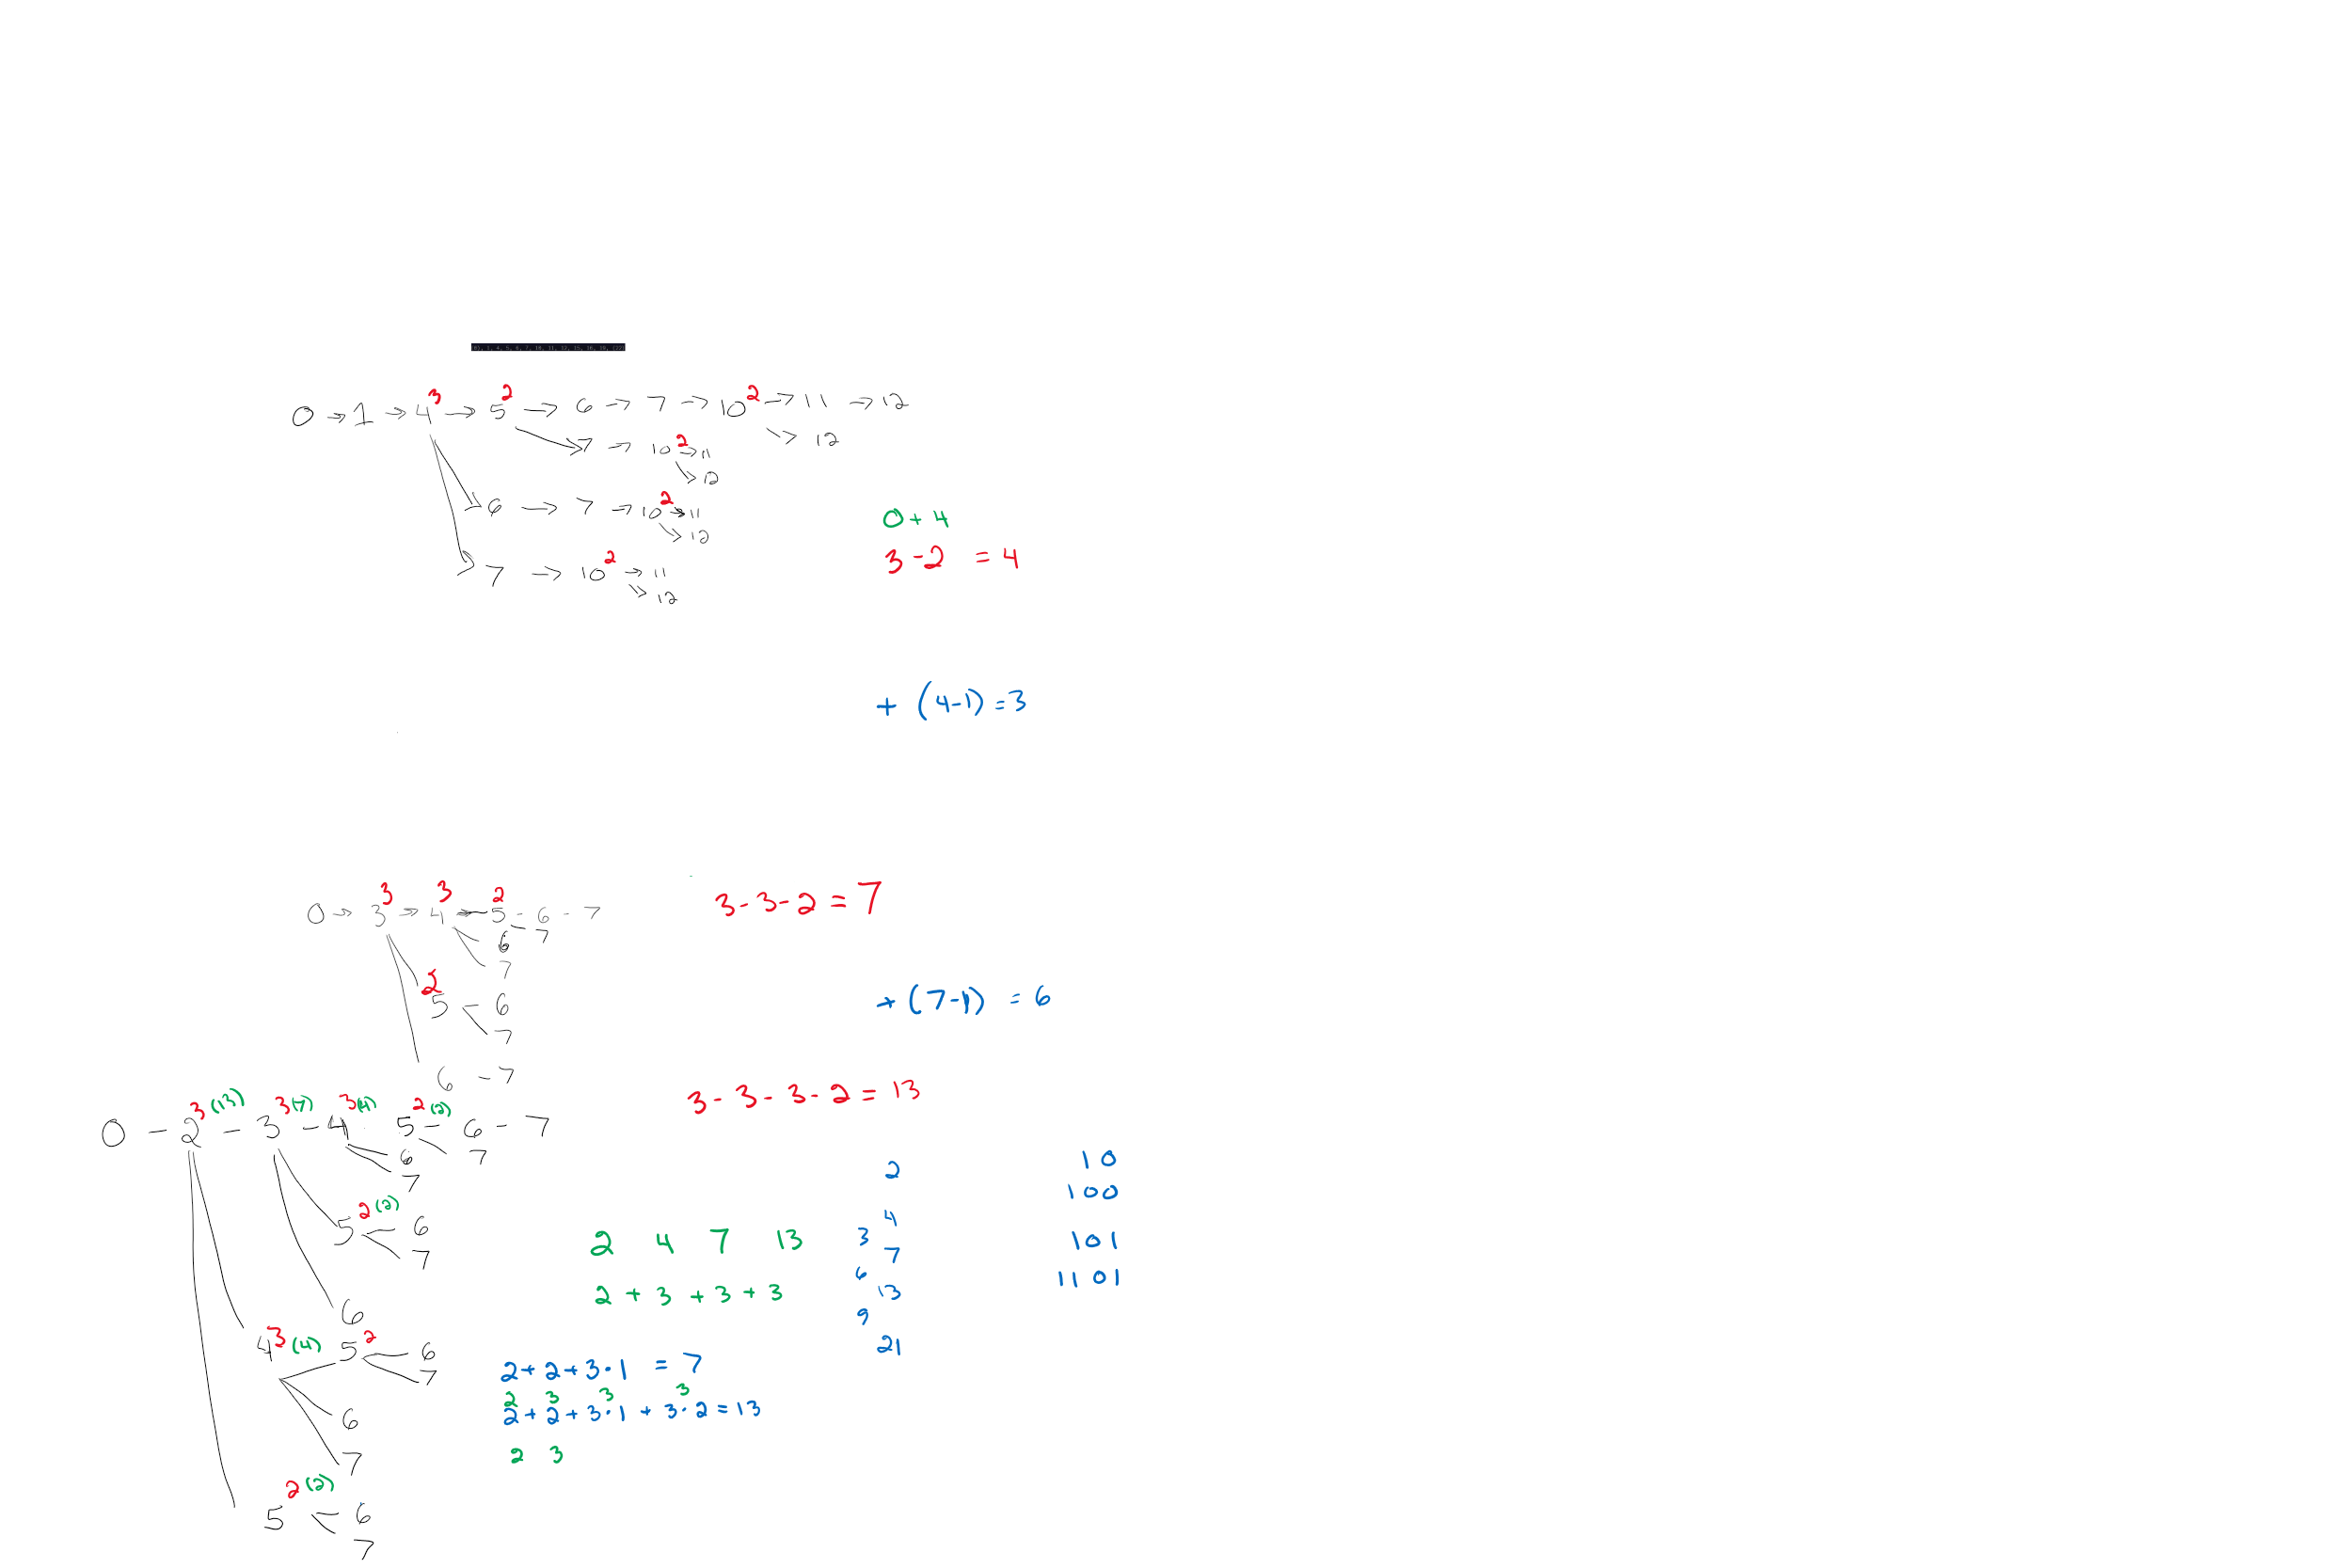 (0), 1, 4, 5, 6, 7, 10, 11, 12, 15, 16, 19, (22)
0 → 1 → 4 3 → 5 2 → 6 → 7 → 10 2 → 11 → 12
→ 12
→ 7 → 10 2 → 11
→ 12
→ 6 → 7 → 10 2 → 11
→ 12
→ 7 → 10 2 → 11
→ 12
0 + 4
3 - 2 = 4
+ (4-1) = 3
0 → 3 3 → 4 3 → 5 2 - 6 - 7
6 7
7
5 2 - 6
7
6 - 7
3 - 3 - 2 = 7
+ (7-1) = 6
3 - 3 - 3 - 2 = 13
0 - 2 3 (13) - 3 3 (7) - 4 3 (4) 5 2 (2) - 6 - 7
6 7
7
5 2 (2) - 6
7
6
4 3 (4) 5 2 - 6
7
6
7
5 2 (2) - 6
7
2 4 7 13
2 + 3 + 3 + 3
2 + 2 + 3 · 1 = 7
2 3 3 3
2 + 2 + 3 · 1 + 3 · 2 = 13
2 3
2
4
3
7
6
13
9
21
10
100
101
1101